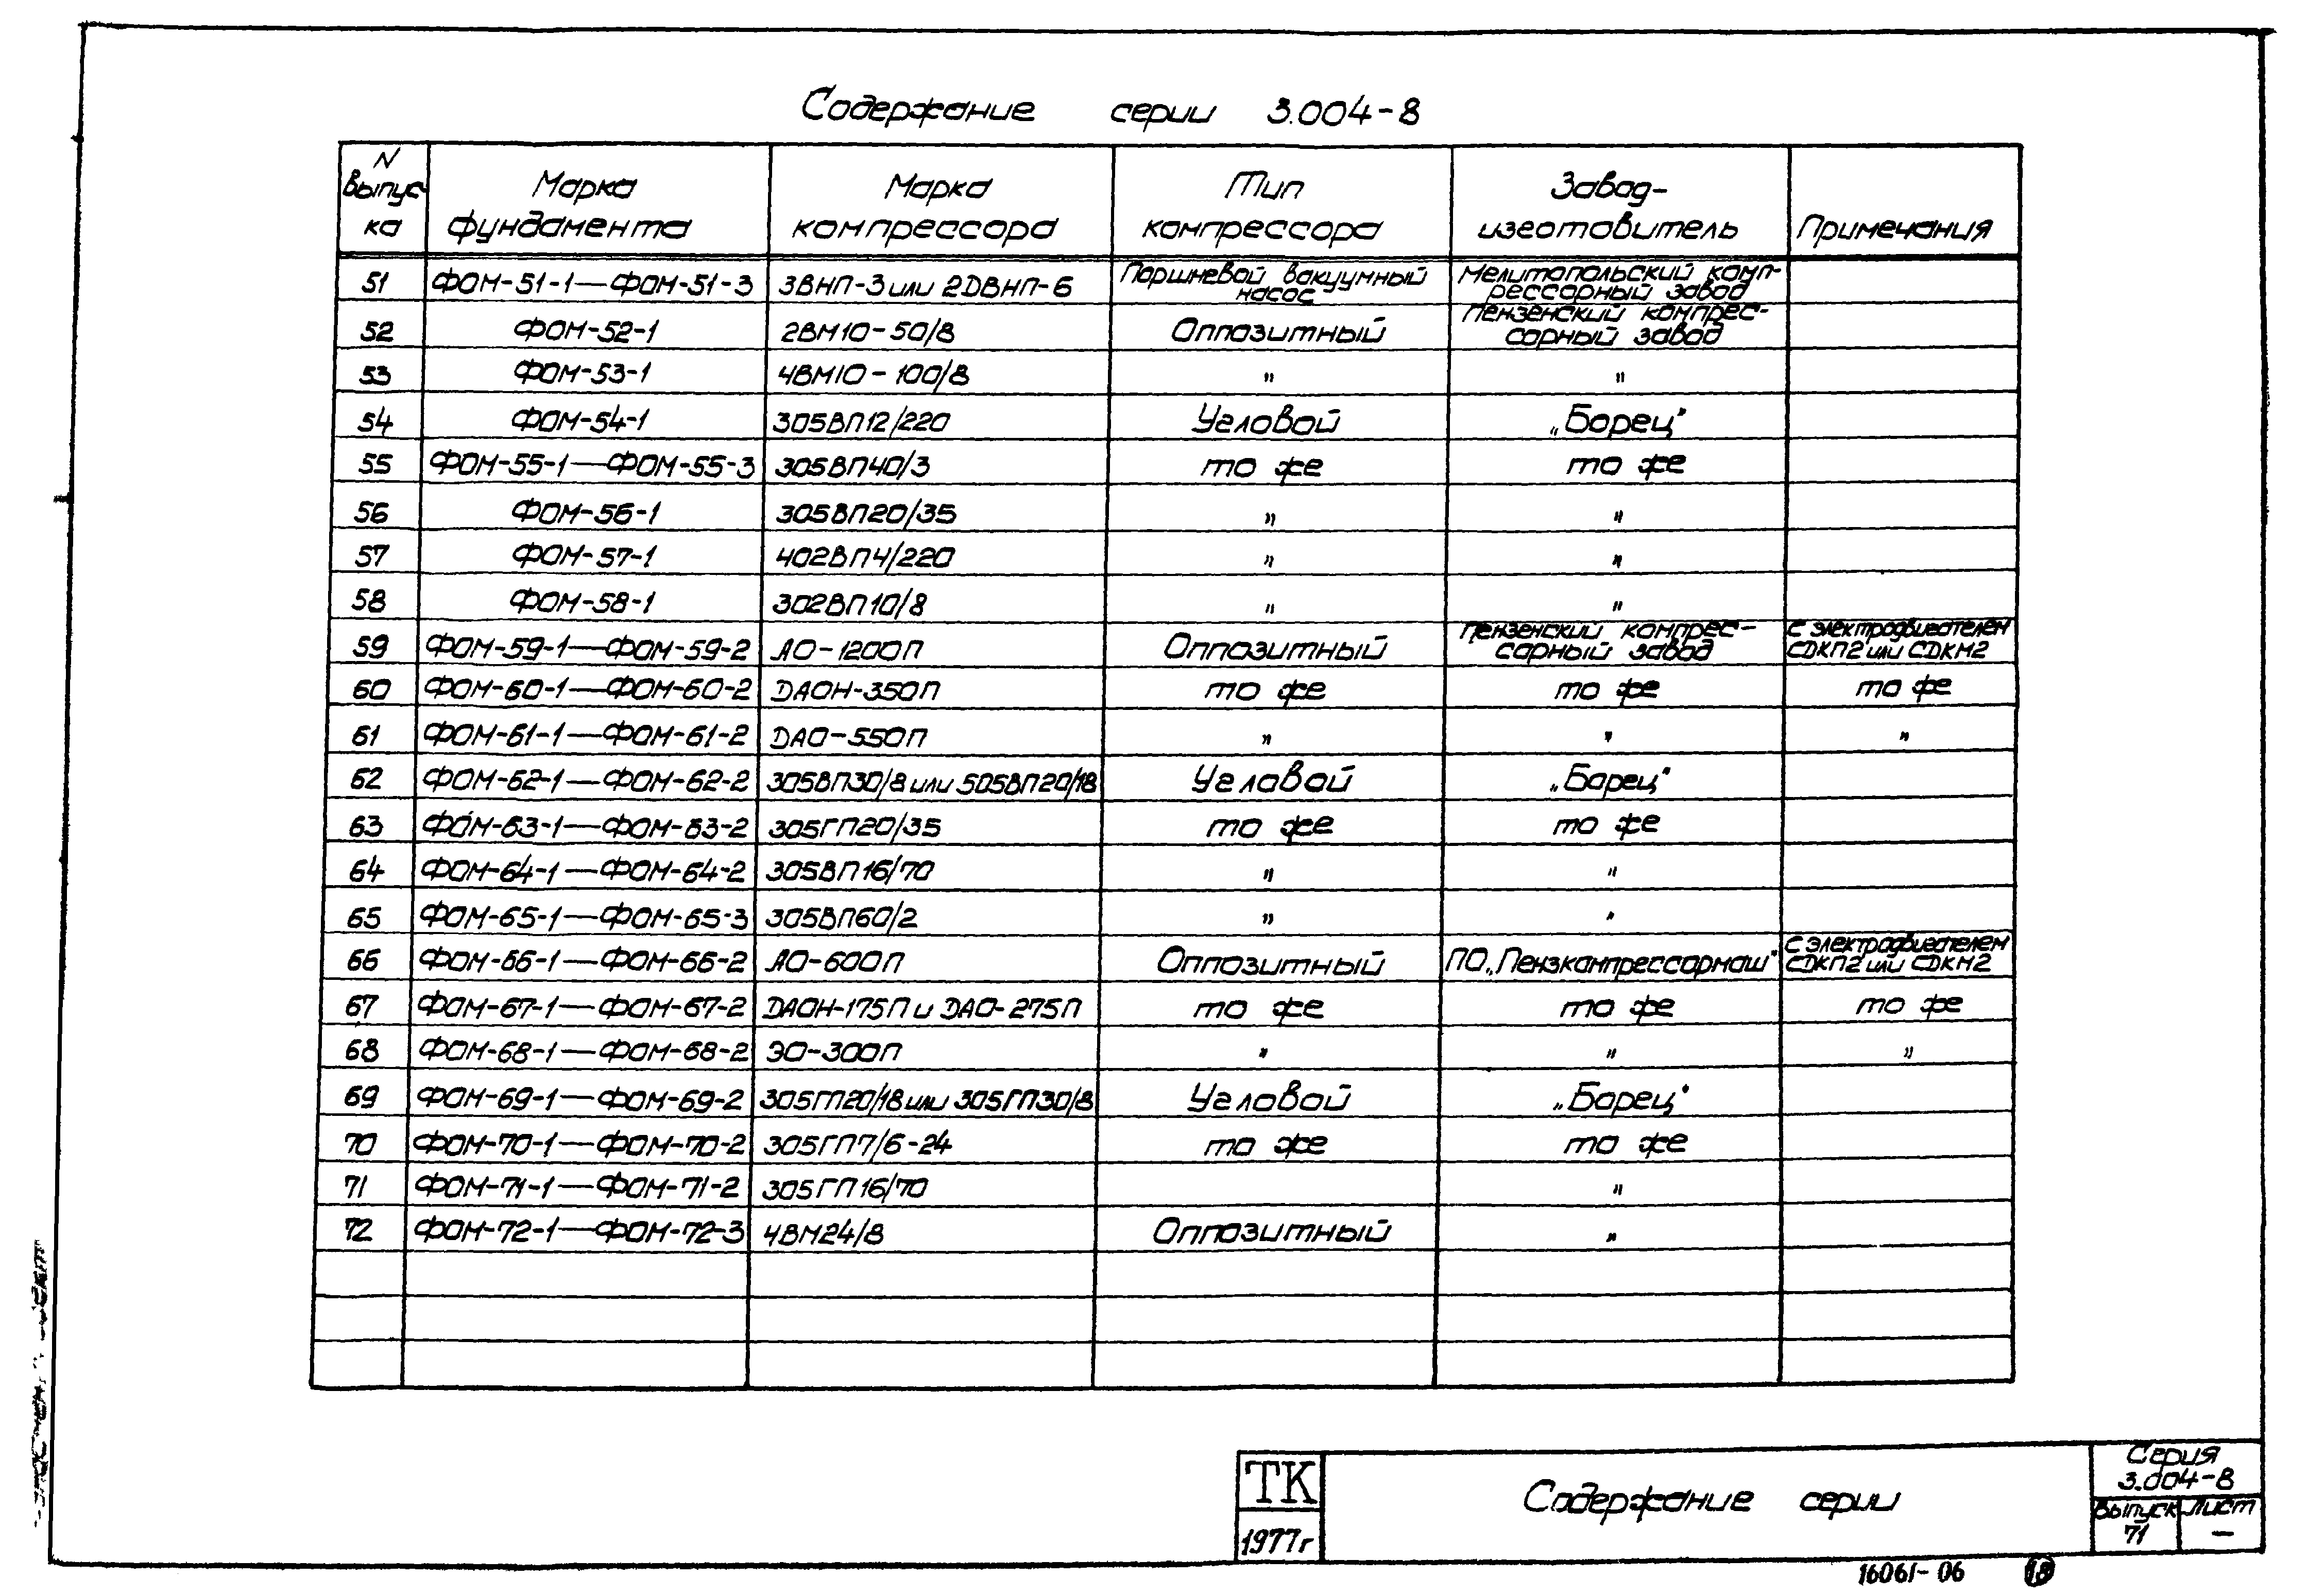 Содержание серии 3.004-8
N выпус-ка | Марка фундамента | Марка компрессора | Тип компрессора | Завод-изготовитель | Примечания
51 | ФОМ-51-1—ФОМ-51-3 | 3ВНП-3 или 2DВНП-6 | Поршневой вакуумный насос | Мелитопольский комп-рессорный завод
52 | ФОМ-52-1 | 2ВМ10-50/8 | Оппозитный | Пензенский компрес-сорный завод
53 | ФОМ-53-1 | 4ВМ10-100/8 | " | "
54 | ФОМ-54-1 | 305ВП12/220 | Угловой | „Борец"
55 | ФОМ-55-1—ФОМ-55-3 | 305ВП40/3 | то же | то же
56 | ФОМ-56-1 | 305ВП20/35 | " | "
57 | ФОМ-57-1 | 402ВП4/220 | " | "
58 | ФОМ-58-1 | 302ВП10/8 | " | "
59 | ФОМ-59-1—ФОМ-59-2 | АО-1200П | Оппозитный | Пензенский компрес-сорный завод | С электродвигателем СДКП2 или СДКМ2
60 | ФОМ-60-1—ФОМ-60-2 | DАОН-350П | то же | то же | то же
61 | ФОМ-61-1—ФОМ-61-2 | DАО-550П | " | " | "
62 | ФОМ-62-1—ФОМ-62-2 | 305ВП30/8 или 505ВП20/18 | Угловой | „Борец"
63 | ФОМ-63-1—ФОМ-63-2 | 305ГП20/35 | то же | то же
64 | ФОМ-64-1—ФОМ-64-2 | 305ВП16/70 | " | "
65 | ФОМ-65-1—ФОМ-65-3 | 305ВП60/2 | " | "
66 | ФОМ-66-1—ФОМ-66-2 | АО-600П | Оппозитный | ПО „Пензкомпрессормаш" | С электродвигателем СДКП2 или СДКМ2
67 | ФОМ-67-1—ФОМ-67-2 | DАОН-175П и DАО-275П | то же | то же | то же
68 | ФОМ-68-1—ФОМ-68-2 | ЭО-300П | " | " | "
69 | ФОМ-69-1—ФОМ-69-2 | 305ГП20/18 или 305ГП30/8 | Угловой | „Борец"
70 | ФОМ-70-1—ФОМ-70-2 | 305ГП7/6-24 | то же | то же
71 | ФОМ-71-1—ФОМ-71-2 | 305ГП16/70 | | "
72 | ФОМ-72-1—ФОМ-72-3 | 4ВМ24/8 | Оппозитный | "
ТК
1977г
Содержание серии
Серия
3.004-8
Выпуск Лист
71 —
16061-06 18